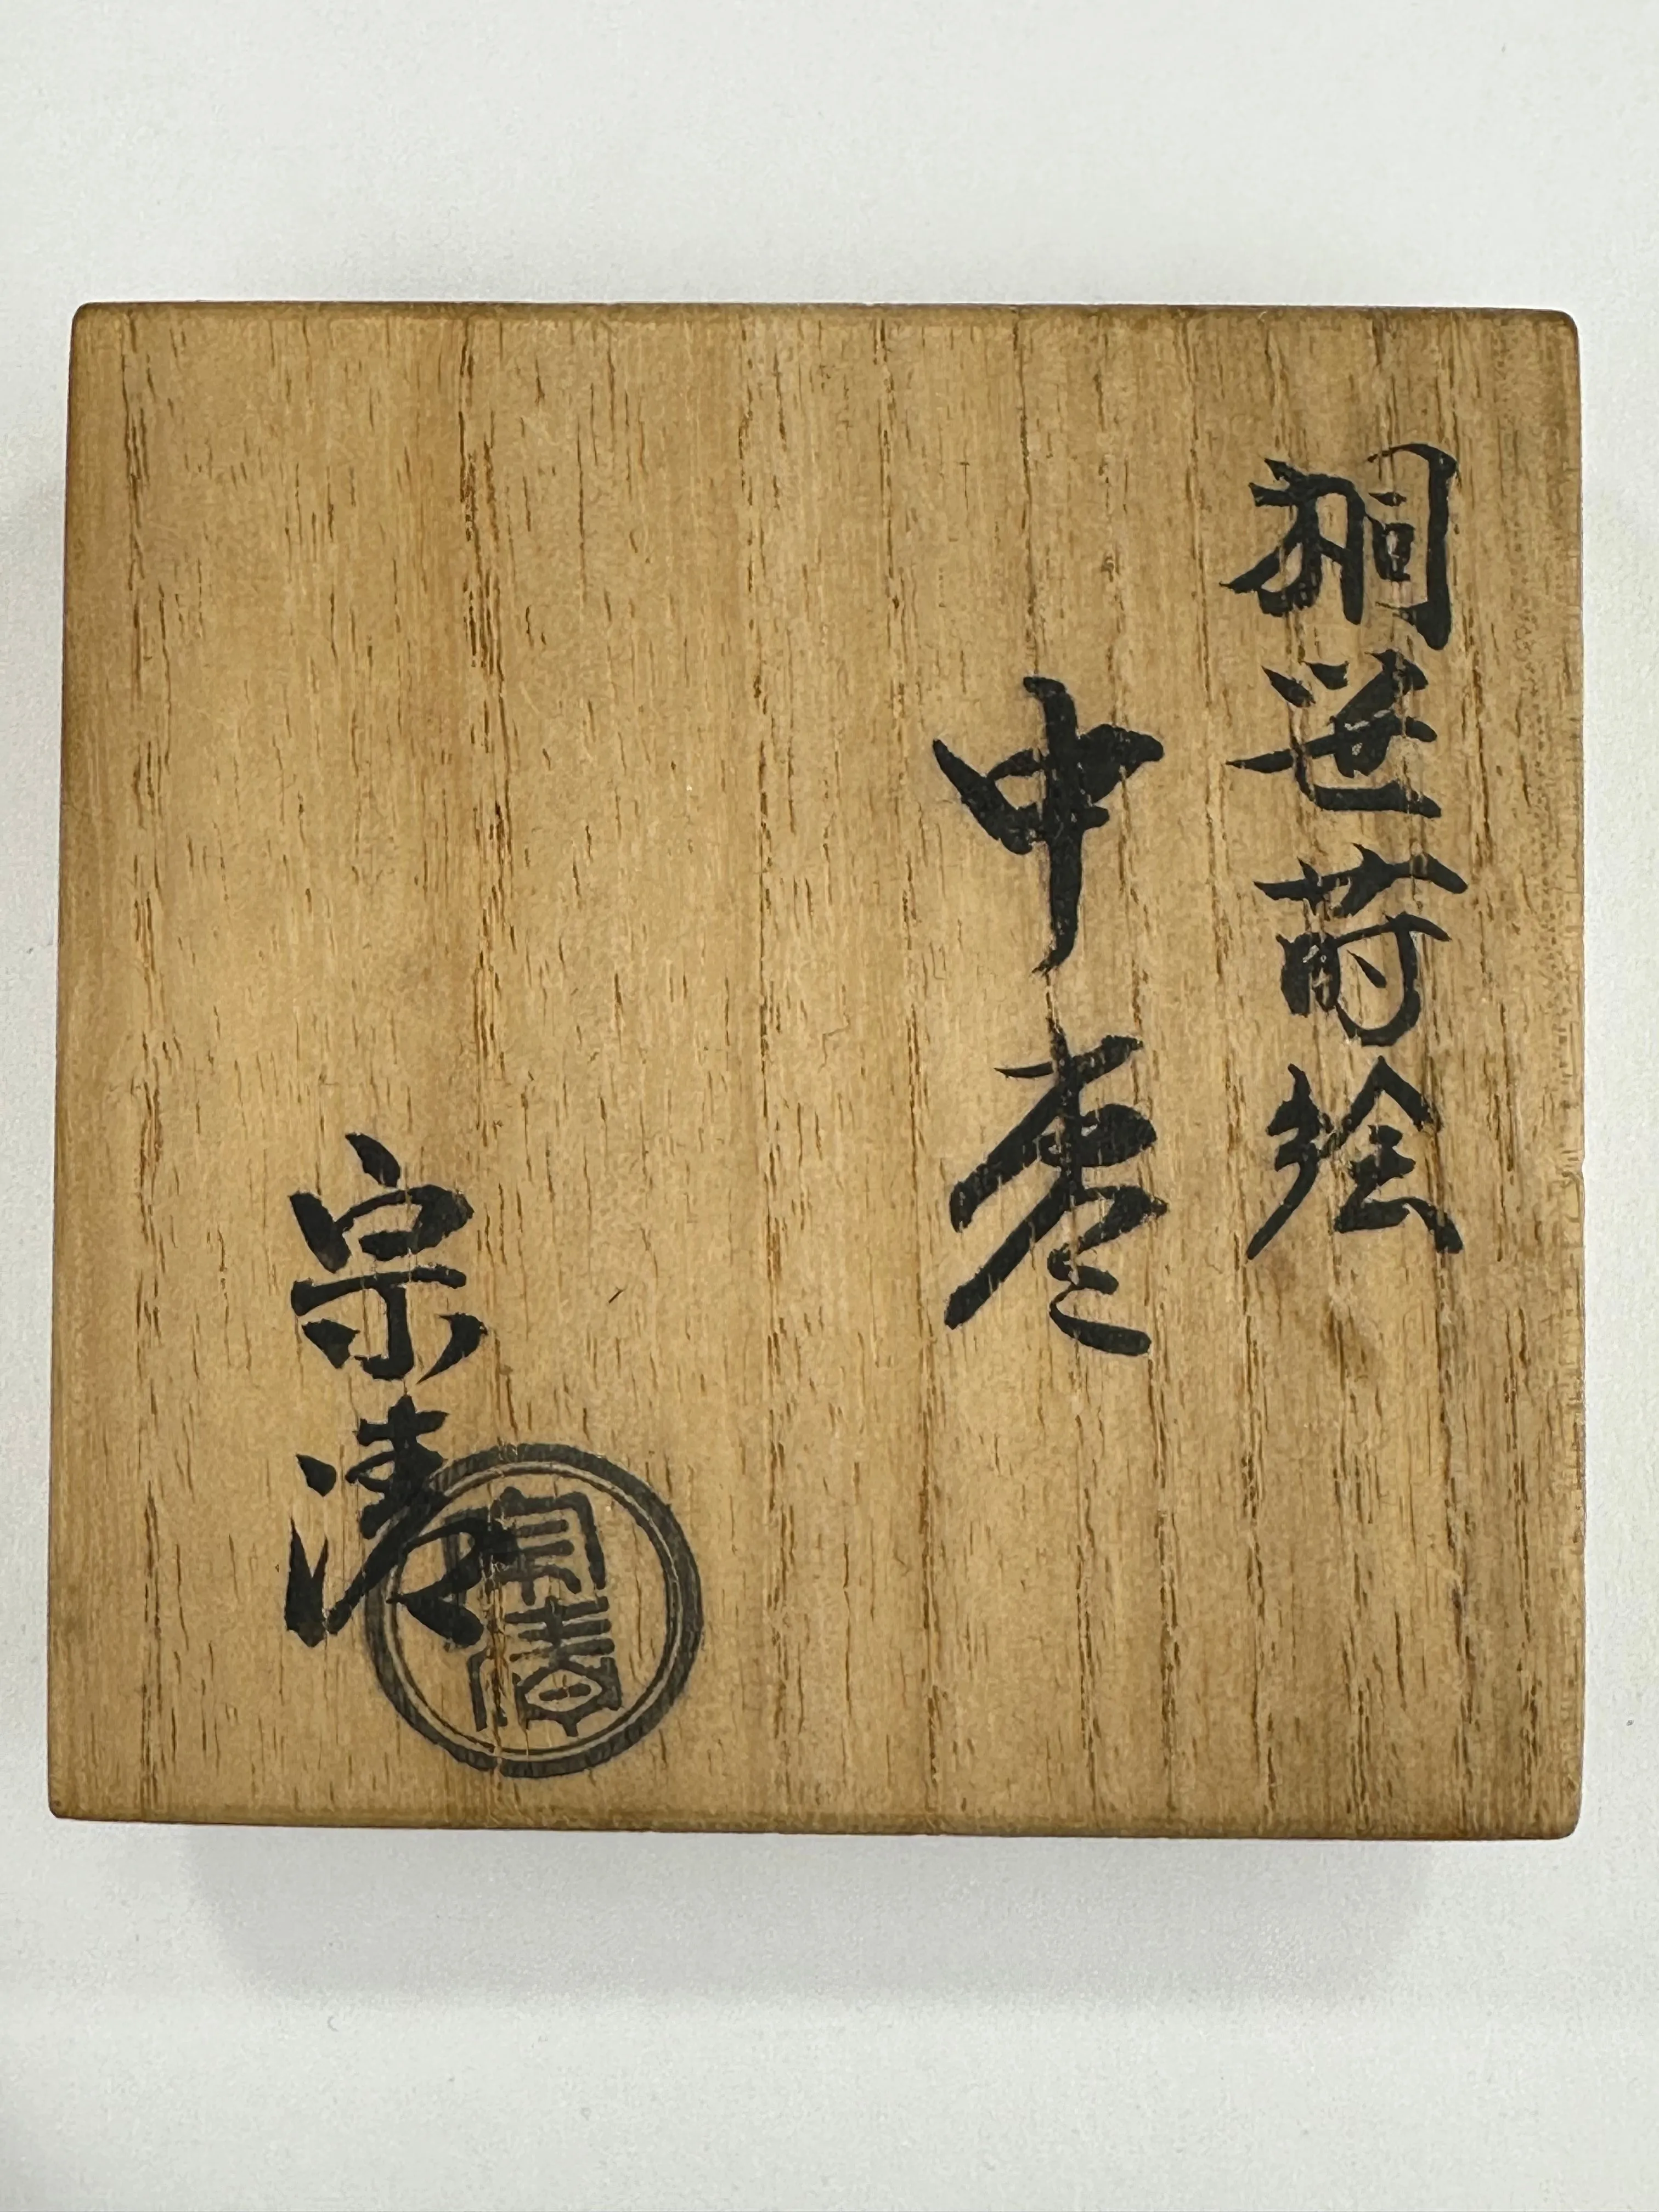 桐笹蒔絵
中棗
宗清
宗春